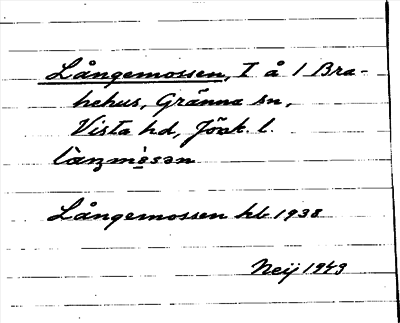 Långemossen, T å 1 Bra-
hehus, Gränna sn,
Vista hd, Jönk. l.
Långemossen hb 1938
Neij 1943